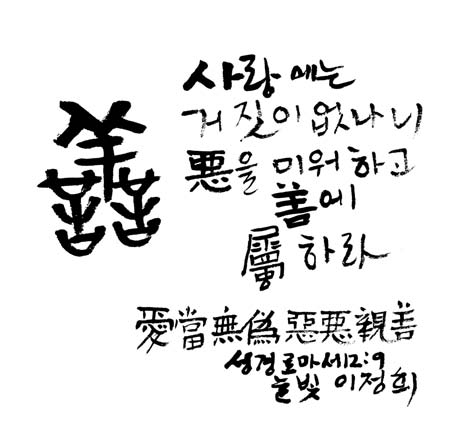 譱
사랑에는
거짓이 없나니
悪을 미워하고
善에
屬하라
愛當無僞惡悪親善
성경로마세12:9
늘빛 이정희